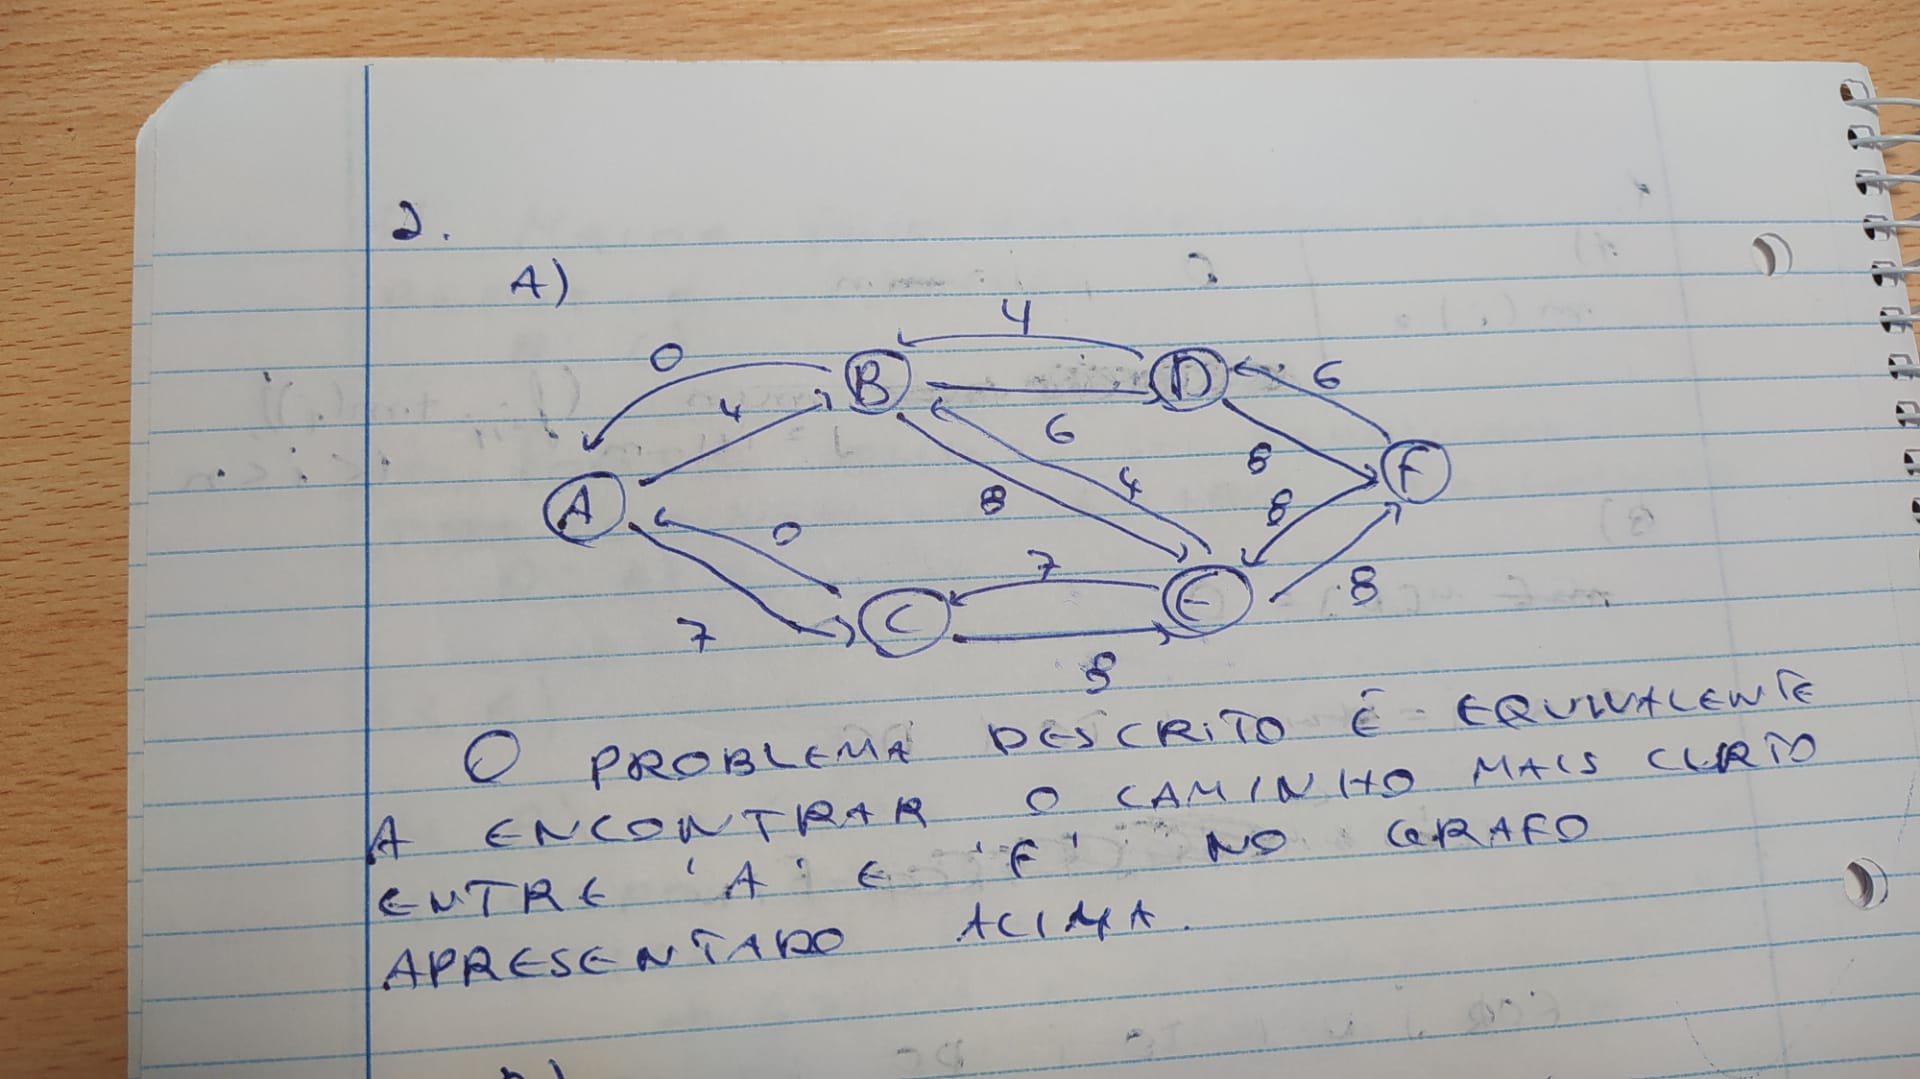 2.
A)
4
0
B
D
6
4
6
F
8
A
8
4
8
0
7
E
8
7
C
8
O PROBLEMA DESCRITO É EQUIVALENTE
A ENCONTRAR O CAMINHO MAIS CURTO
ENTRE 'A' E 'F' NO GRAFO
APRESENTADO ACIMA.